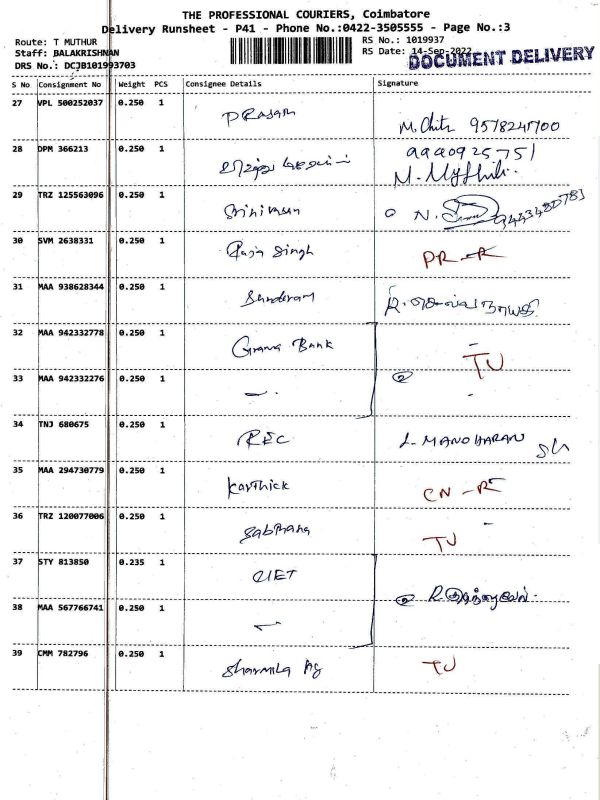 THE PROFESSIONAL COURIERS, Coimbatore
Delivery Runsheet - P41 - Phone No.:0422-3505555 - Page No.:3
Route: T MUTHUR
RS No.: 1019937
Staff: BALAKRISHNAN
RS Date: 14-Sep-2022
DOCUMENT DELIVERY
DRS No.: DCJB101993703
S No Consignment No Weight PCS Consignee Details Signature
27 VPL 500252037 0.250 1 Prasam
28 DPM 366213 0.250 1
29 TRZ 125563096 0.250 1 Srinivasan
30 SVM 2638331 0.250 1 Raja Singh PR-R
31 MAA 938628344 0.250 1 Sundaram
32 MAA 942332778 0.250 1 Grama Bank TU
33 MAA 942332276 0.250 1
34 TNJ 680675 0.250 1 REC L. MANOHARAN
35 MAA 294730779 0.250 1 Karthick CN-R
36 TRZ 120077006 0.250 1 TU
37 STY 813850 0.235 1 CIET
38 MAA 567766741 0.250 1
39 CMM 782796 0.250 1 Sharmila Ag TU